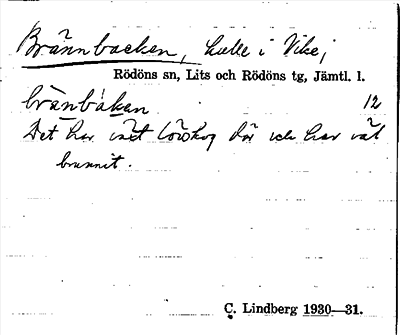 Brännbacken, kulle i Vike;
Rödöns sn, Lits och Rödöns tg, Jämtl. l.
brànbáken 12
Det har vàrt lövskog där och har väl
brunnit.
C. Lindberg 1930—31.